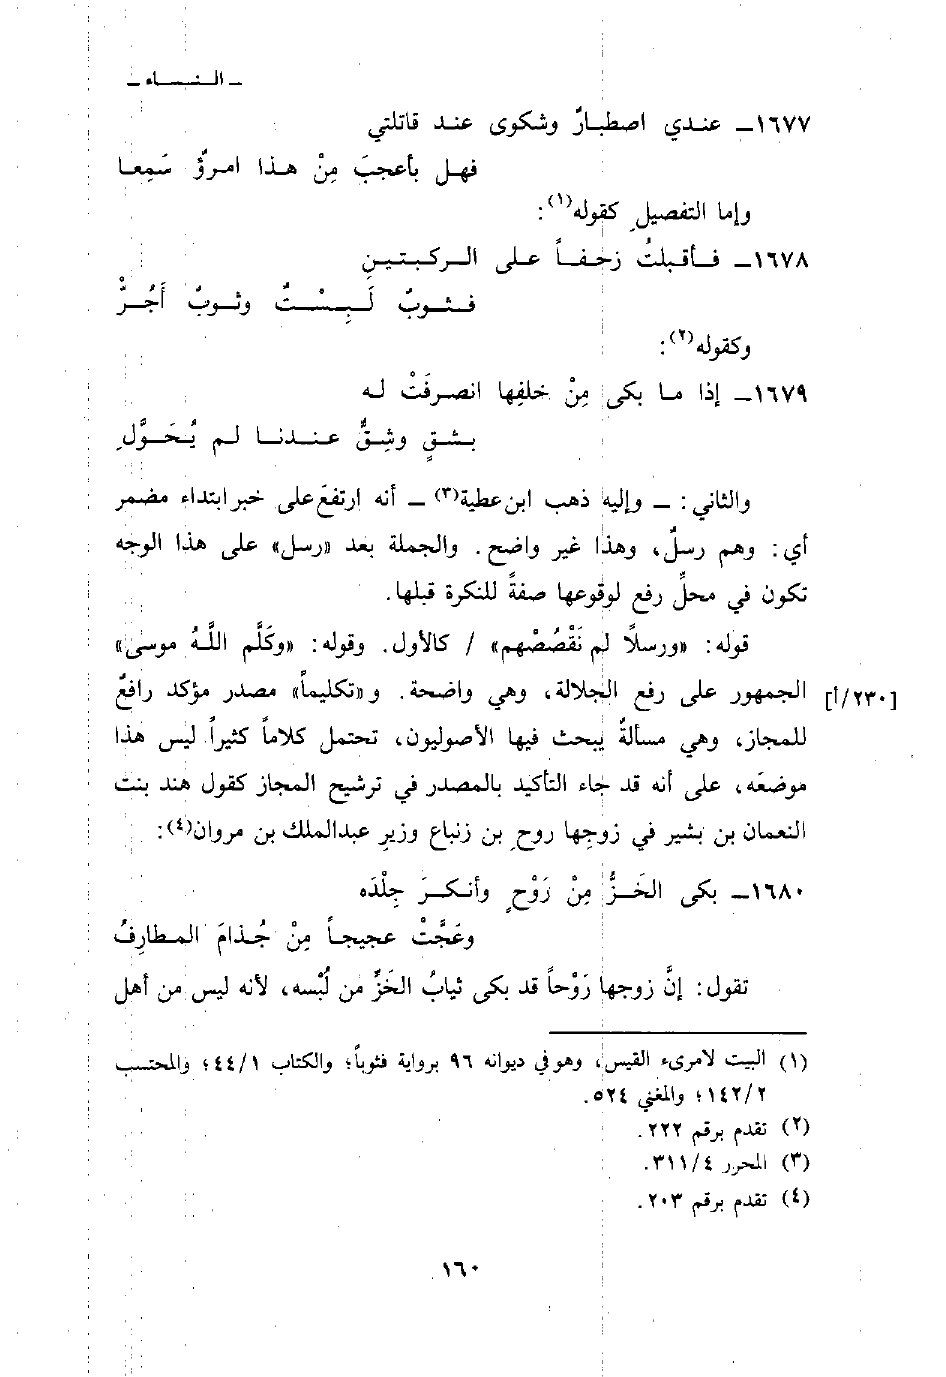 ـ النساء ـ
١٦٧٧ـ عندي اصطبارٌ وشكوى عند قاتلتي
فهل بأعجبَ مِنْ هذا امرؤٌ سَمِعا
وإما التفصيلِ كقوله(١):
١٦٧٨ـ فأقبلتُ زحفاً على الركبتينِ
فثوبٌ لَبِسْتُ وثوبٌ أَجُرّْ
وكقوله(٢):
١٦٧٩ـ إذا ما بكى مِنْ خلفِها انصرفَتْ له
بشقٍ وشِقٌّ عندنا لم يُحَوَّلِ
والثاني: ـ وإليه ذهب ابن عطية(٣) ـ أنه ارتفعَ على خبر ابتداء مضمر
أي: وهم رسلٌ، وهذا غير واضح. والجملة بعد «رسل» على هذا الوجه
تكون في محلِّ رفع لوقوعها صفةً للنكرة قبلها.
قوله: «ورسلاً لم نَقْصُصْهم» / كالأول. وقوله: «وكَلَّم اللَّهُ موسى»
[٢٣٠/أ] الجمهور على رفع الجلالة، وهي واضحة. و«تكليماً» مصدر مؤكد رافعٌ
للمجاز، وهي مسألةٌ يبحث فيها الأصوليون، تحتمل كلاماً كثيراً ليس هذا
موضعَه، على أنه قد جاء التأكيد بالمصدر في ترشيح المجاز كقول هند بنت
النعمان بن بشير في زوجِها روحِ بن زنباع وزيرِ عبدالملك بن مروان(٤):
١٦٨٠ـ بكى الخَزُّ مِنْ رَوْحٍ وأنكرَ جِلْدَه
وعَجَّتْ عجيجاً مِنْ جُذامَ المطارِفُ
تقول: إنَّ زوجها رَوْحاً قد بكى ثيابُ الخَزِّ من لُبْسه، لأنه ليس من أهل
(١) البيت لامرىء القيس، وهو في ديوانه ٩٦ برواية فثوباً؛ والكتاب ٤٤/١؛ والمحتسب
١٤٢/٢؛ والمغني ٥٢٤.
(٢) تقدم برقم ٢٢٢.
(٣) المحرر ٣١١/٤.
(٤) تقدم برقم ٢٠٣.
١٦٠